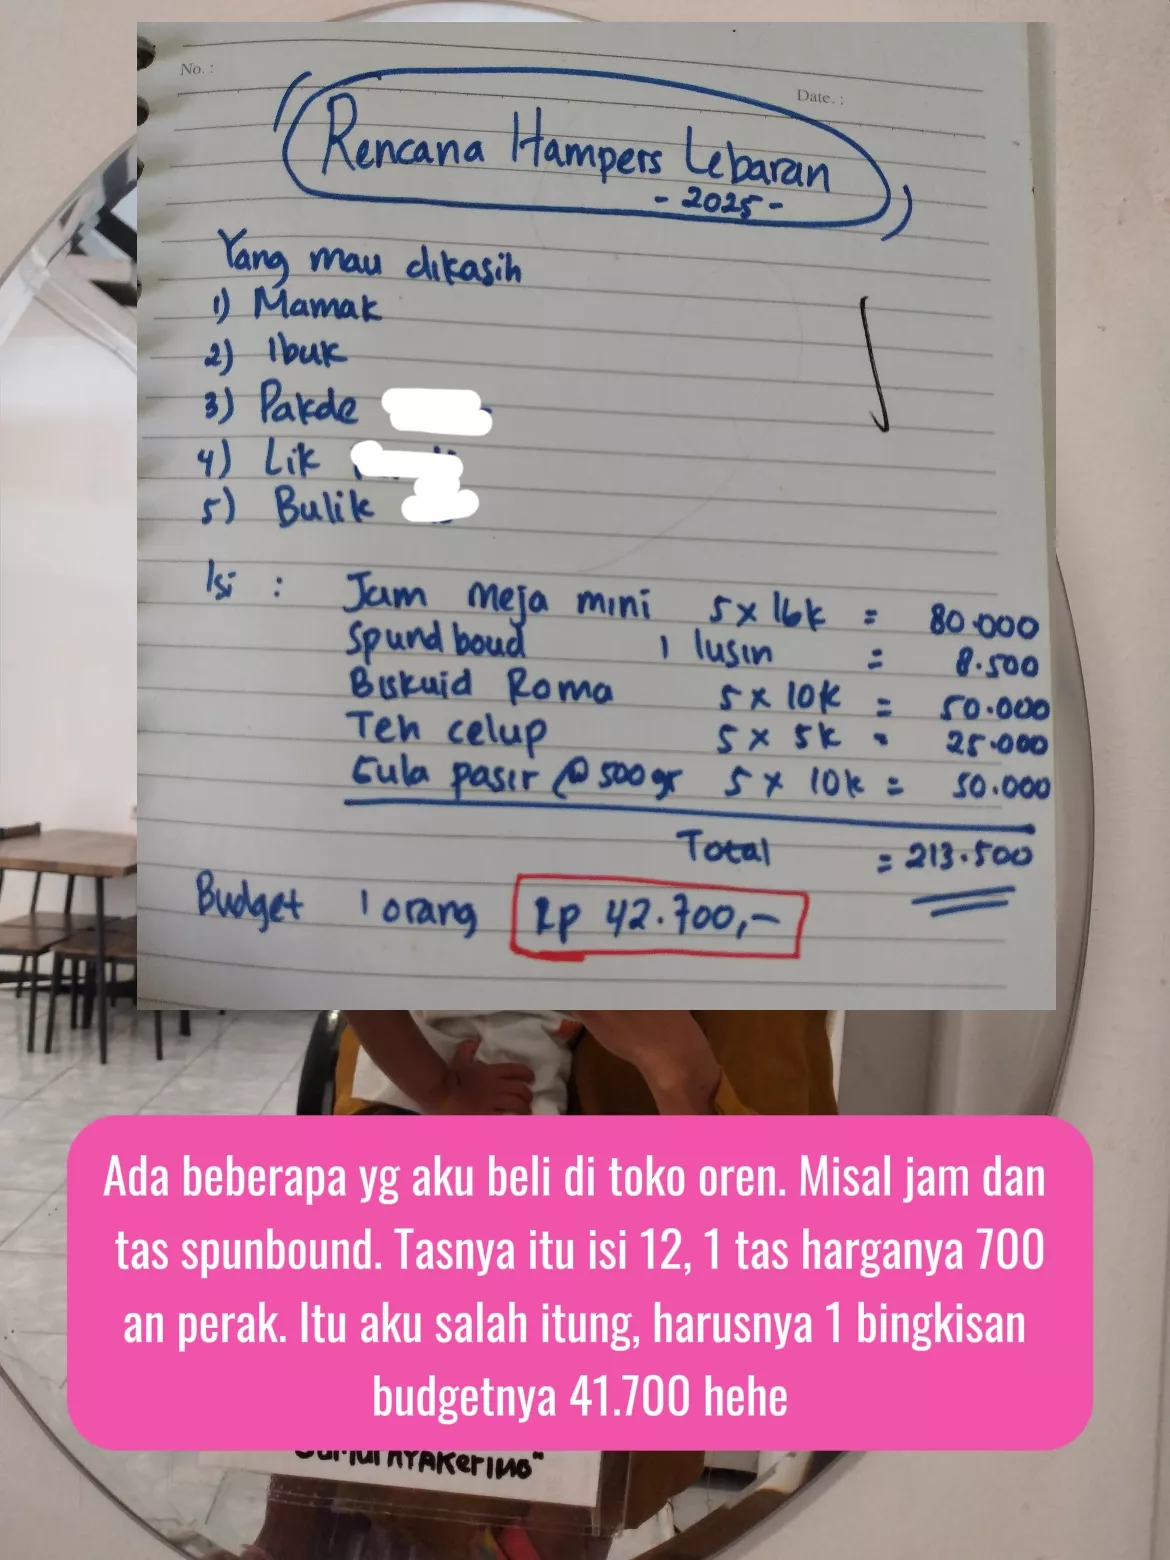 No. :
Date. :
Rencana Hampers Lebaran
- 2025 -
Yang mau dikasih
1) Mamak
2) Ibuk
3) Pakde
4) Lik
5) Bulik
Isi : Jam meja mini 5 x 16k = 80.000
Spundboud 1 lusin = 8.500
Biskuid Roma 5 x 10k = 50.000
Teh celup 5 x 5k = 25.000
Gula pasir @ 500 gr 5 x 10k = 50.000
Total = 213.500
Budget 1 orang Rp 42.700,-
Ada beberapa yg aku beli di toko oren. Misal jam dan
tas spunbound. Tasnya itu isi 12, 1 tas harganya 700
an perak. Itu aku salah itung, harusnya 1 bingkisan
budgetnya 41.700 hehe